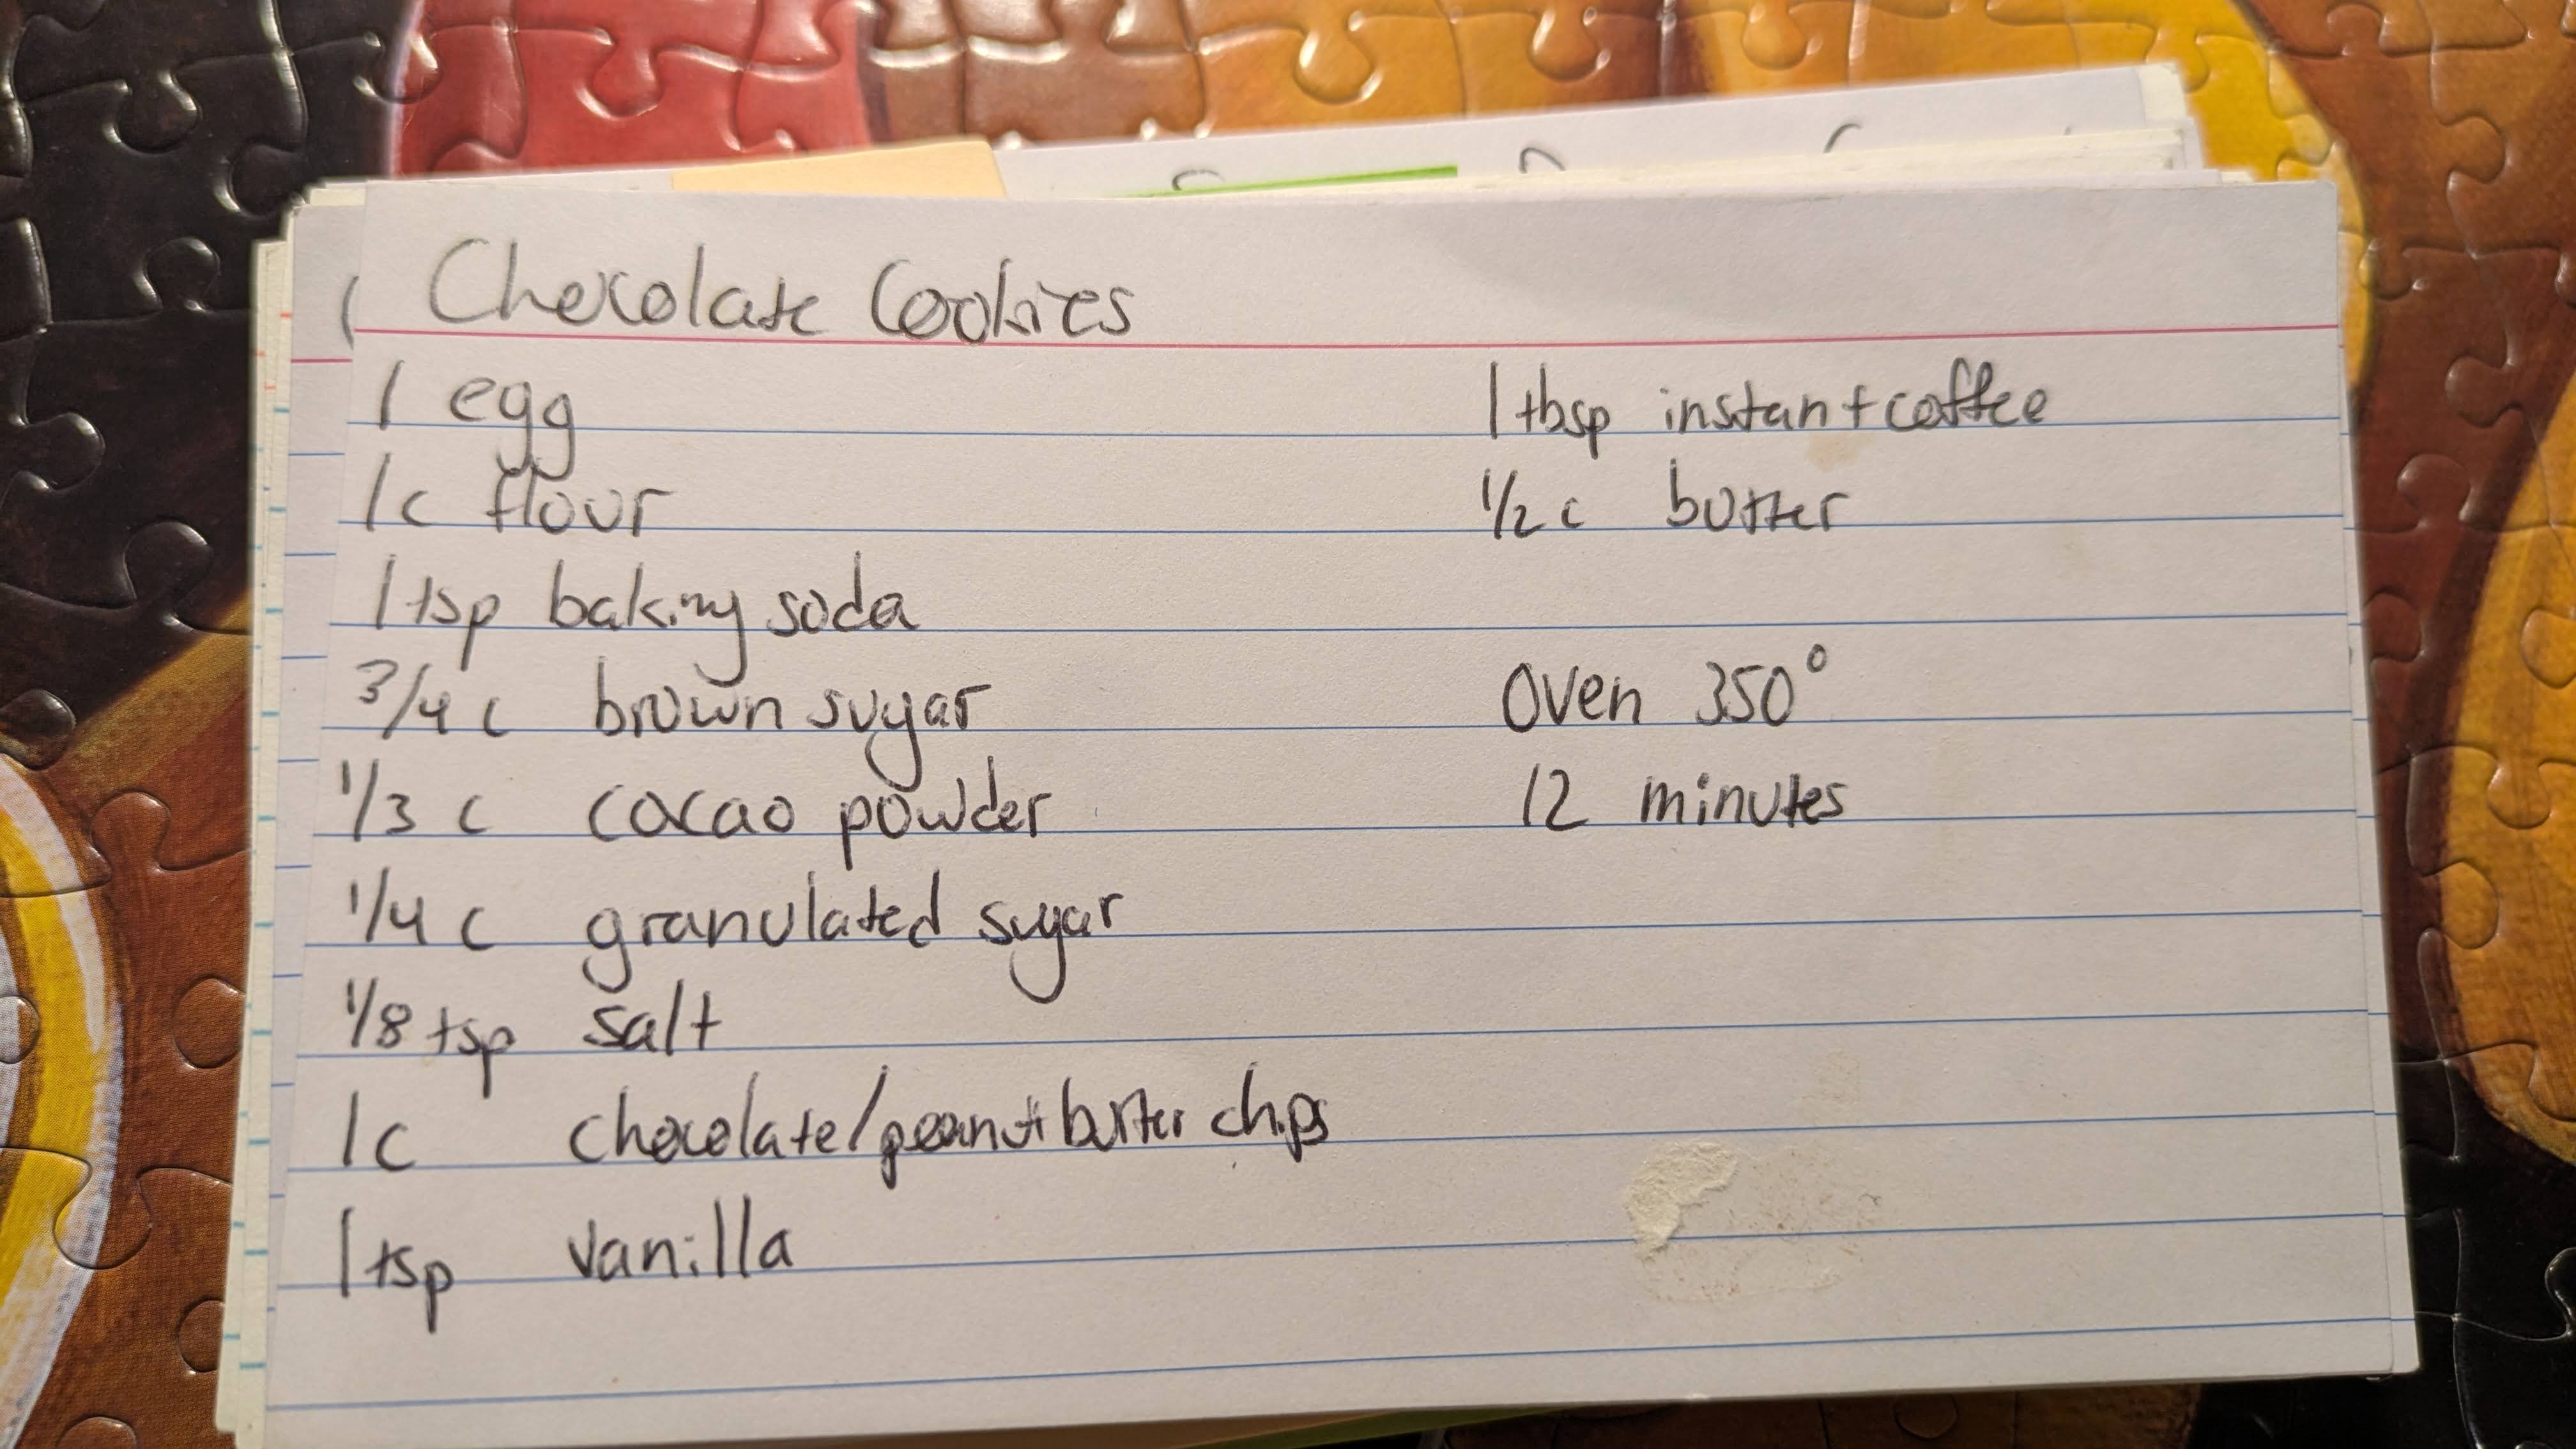 Chocolate Cookies
1 egg
1c flour
1 tsp baking soda
3/4 c brown sugar
1/3 c cacao powder
1/4 c granulated sugar
1/8 tsp salt
1c chocolate/peanut butter chips
1 tsp vanilla
1 tbsp instant coffee
1/2 c butter
Oven 350°
12 minutes